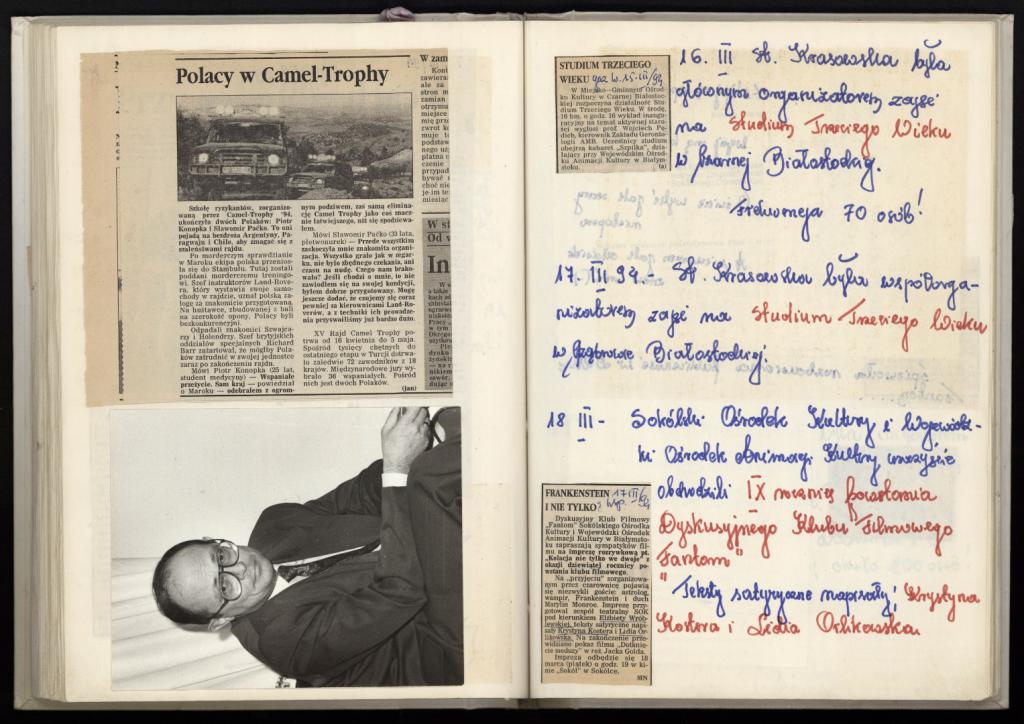 Polacy w Camel-Trophy
Szkołę ryzykantów, zorganizo-
waną przez Camel-Trophy '94,
ukończyło dwóch Polaków: Piotr
Konopka i Sławomir Paćko. To oni
pojadą na bezdroża Argentyny, Pa-
ragwaju i Chile, aby zmagać się z
szaleństwami rajdu.
Po morderczym sprawdzianie
w Maroku ekipa polska przenios-
ła się do Stambułu. Tutaj zostali
poddani morderczemu treningo-
wi. Szef instruktorów Land-Rove-
ra, który wystawia swoje samo-
chody w rajdzie, uznał polską za-
łogę za znakomicie przygotowaną.
Na huśtawce, zbudowanej z bali
na szerokość opony, Polacy byli
bezkonkurencyjni.
Odpadali znakomici Szwajca-
rzy i Holendrzy. Szef brytyjskich
oddziałów specjalnych Richard
Barr zażartował, że mógłby Pola-
ków zatrudnić w swojej jednostce
zaraz po zakończeniu rajdu.
Mówi Piotr Konopka (25 lat,
student medycyny) — Wspaniałe
przeżycie. Sam kraj — powiedział
o Maroku — odebrałem z ogrom-
nym podziwem, zaś samą elimina-
cję Camel Trophy jako coś znacz-
nie łatwiejszego, niż się spodziewa-
łem.
Mówi Sławomir Paćko (33 lata,
płetwonurek) — Przede wszystkim
zaskoczyła mnie znakomita organi-
zacja. Wszystko grało jak w zegar-
ku, nie było zbędnego czekania, ani
czasu na nudę. Czego nam brako-
wało? Jeśli chodzi o mnie, to nie
zawiodłem się na swojej kondycji,
byłem dobrze przygotowany. Mogę
jeszcze dodać, że czujemy się coraz
pewniej za kierownicami Land-Ro-
verów, a z techniki ich prowadze-
nia przyswoiliśmy już bardzo dużo.
XV Rajd Camel Trophy po-
trwa od 16 kwietnia do 5 maja.
Spośród tysięcy chętnych do
ostatniego etapu w Turcji dotrwa-
ło zaledwie 72 zawodników z 18
krajów. Międzynarodowe jury wy-
brało 36 wspaniałych. Pośród
nich jest dwóch Polaków.
(jan)
W zam
In
STUDIUM TRZECIEGO
WIEKU gaz. W. 15. III/94
W Miejsko-Gminnym Ośrod-
ku Kultury w Czarnej Białostoc-
kiej rozpoczyna działalność Stu-
dium Trzeciego Wieku. W środę,
16 bm. o godz. 16 wykład inaugu-
racyjny na temat aktywnej staro-
ści wygłosi prof. Wojciech Pę-
dich, kierownik Zakładu Geronto-
logii AMB. Uczestnicy studium
obejrzą kabaret „Szpilka", dzia-
łający przy Wojewódzkim Ośrod-
ku Animacji Kultury w Białym-
stoku.
16. III St. Krasowska była
głównym organizatorem zajęć
na Studium Trzeciego Wieku
w Czarnej Białostockiej.
Frekwencja 70 osób!
17. III 94 - St. Krasowska była współorga-
nizatorem zajęć na Studium Trzeciego Wieku
w Czarnej Białostockiej.
18 III - Sokólski Ośrodek Kultury i Wojewódz-
ki Ośrodek Animacji Kultury uroczyście
obchodzili IX rocznicę powstania
Dyskusyjnego Klubu Filmowego
"Fantom"
Teksty satyryczne napisały: Krystyna
Kostera i Lidia Orlikowska
FRANKENSTEIN 17 III/94
I NIE TYLKO? Wsp.
Dyskusyjny Klub Filmowy
„Fantom" Sokólskiego Ośrodka
Kultury i Wojewódzki Ośrodek
Animacji Kultury w Białymsto-
ku zapraszają sympatyków fil-
mu na imprezę rozrywkową pt.
„Kolacja nie tylko we dwoje" z
okazji dziewiątej rocznicy po-
wstania klubu filmowego.
Na „przyjęciu" zorganizowa-
nym przez czarownicę pojawią
się niezwykli goście: astrolog,
wampir, Frankenstein i duch
Marylin Monroe. Imprezę przy-
gotował zespół teatralny SOK
pod kierunkiem Elżbiety Wrób-
lewskiej, teksty satyryczne napi-
sały Krystyna Kostera i Lidia Or-
likowska. Na zakończenie prze-
widziano pokaz filmu „Dotknię-
cie meduzy" w reż. Jacka Golda.
Impreza odbędzie się 18
marca (piątek) o godz. 19 w ki-
nie „Sokół" w Sokółce.
MN